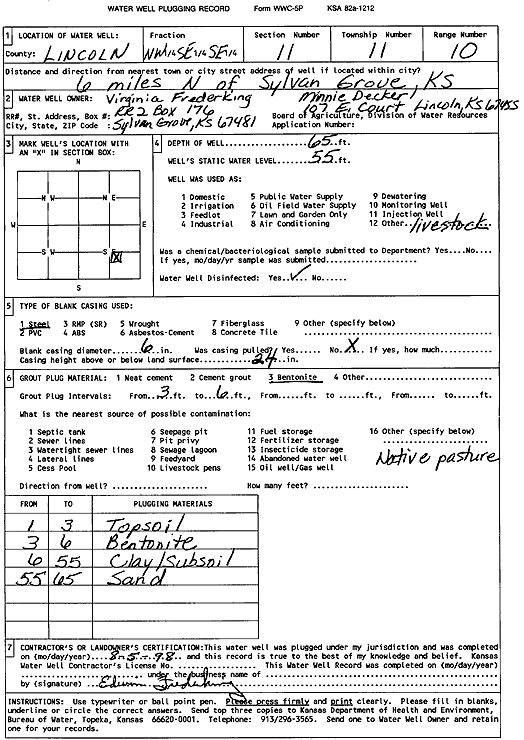 WATER WELL PLUGGING RECORD Form WWC-5P KSA 82a-1212
1 LOCATION OF WATER WELL: Fraction Section Number Township Number Range Number
County: LINCOLN NW1/4SE1/4SE1/4 11 11 10
Distance and direction from nearest town or city street address of well if located within city?
6 miles N of Sylvan Grove, KS
2 WATER WELL OWNER: Virginia Frederking Minnie Decker, 107 E. Court Lincoln, KS 67455
RR#, St. Address, Box #: RR2 Box 176 Board of Agriculture, Division of Water Resources
City, State, ZIP Code : Sylvan Grove, KS 67481 Application Number:
3 MARK WELL'S LOCATION WITH AN "X" IN SECTION BOX:
N
N W N E
W E
S W S E
X
S
4 DEPTH OF WELL......65..ft.
WELL'S STATIC WATER LEVEL....55....ft.
WELL WAS USED AS:
1 Domestic 5 Public Water Supply 9 Dewatering
2 Irrigation 6 Oil Field Water Supply 10 Monitoring Well
3 Feedlot 7 Lawn and Garden Only 11 Injection Well
4 Industrial 8 Air Conditioning 12 Other..livestock
Was a chemical/bacteriological sample submitted to Department? Yes....No....
If yes, mo/day/yr sample was submitted................
Water Well Disinfected: Yes.✓. No......
5 TYPE OF BLANK CASING USED:
1 Steel 3 RMP (SR) 5 Wrought 7 Fiberglass 9 Other (specify below)
2 PVC 4 ABS 6 Asbestos-Cement 8 Concrete Tile
Blank casing diameter....6...in. Was casing pulled? Yes..... No.X.. If yes, how much........
Casing height above or below land surface........24....in.
6 GROUT PLUG MATERIAL: 1 Neat cement 2 Cement grout 3 Bentonite 4 Other...........
Grout Plug Intervals: From..3..ft. to..6..ft., From......ft. to ......ft., From...... to ......ft.
What is the nearest source of possible contamination:
1 Septic tank 6 Seepage pit 11 Fuel storage 16 Other (specify below)
2 Sewer lines 7 Pit privy 12 Fertilizer storage
3 Watertight sewer lines 8 Sewage lagoon 13 Insecticide storage
4 Lateral lines 9 Feedyard 14 Abandoned water well
5 Cess Pool 10 Livestock pens 15 Oil well/Gas well
Native pasture
Direction from well? .................... How many feet? ...............
FROM TO PLUGGING MATERIALS
1 3 Topsoil
3 6 Bentonite
6 55 Clay/Subsoil
55 65 Sand
7 CONTRACTOR'S OR LANDOWNER'S CERTIFICATION:This water well was plugged under my jurisdiction and was completed
on (mo/day/year)....8-5-98.. and this record is true to the best of my knowledge and belief. Kansas
Water Well Contractor's License No. .................... This Water Well Record was completed on (mo/day/
year) .................... under the business name of ....................
by (signature) Edwin Frederking
INSTRUCTIONS: Use typewriter or ball point pen. Please press firmly and print clearly. Please fill in blanks,
underline or circle the correct answers. Send top three copies to Kansas Department of Health and Environment,
Bureau of Water, Topeka, Kansas 66620-0001. Telephone: 913/296-3565. Send one to Water Well Owner and retain
one for your records.